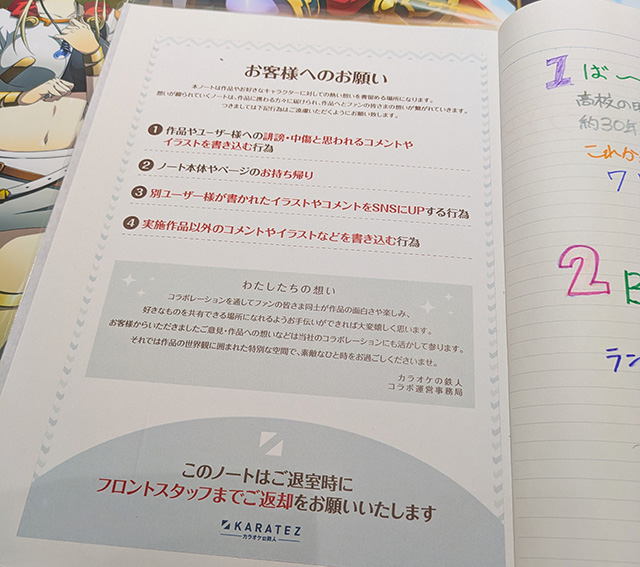 お客様へのお願い
本ノートは作品やお好きなキャラクターに対しての熱い想いを書留める場所になります。
想いが綴られていくノートは、作品に携わる方々に届けられ、作品へとファンの皆さまの想いが繋がれていきます。
つきましては下記行為はご遠慮いただくようにお願い致します。
1 作品やユーザー様への誹謗・中傷と思われるコメントや
イラストを書き込む行為
2 ノート本体やページのお持ち帰り
3 別ユーザー様が書かれたイラストやコメントをSNSにUPする行為
4 実施作品以外のコメントやイラストなどを書き込む行為
わたしたちの想い
コラボレーションを通してファンの皆さま同士が作品の面白さや楽しみ、
好きなものを共有できる場所になれるようお手伝いができれば大変嬉しく思います。
お客様からいただきましたご意見・作品への想いなどは当社のコラボレーションにも活かして参ります。
それでは作品の世界観に囲まれた特別な空間で、素敵なひと時をお過ごしくださいませ。
カラオケの鉄人
コラボ運営事務局
このノートはご退室時に
フロントスタッフまでご返却をお願いいたします
KARATEZ
カラオケの鉄人
1 ば〜
高校の
約30年
これか
2 B
ラン